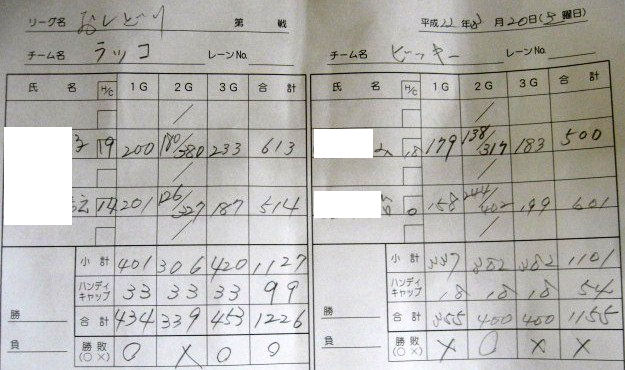 リーグ名 おしどり 第 戦 平成22年8月20日( 曜日)
チーム名 ラッコ レーンNo. チーム名 ビッキー レーンNo.
氏 名 H/C 1G 2G 3G 合計 氏 名 H/C 1G 2G 3G 合計
子 19 200 180/380 233 613 18 179 138/317 183 500
14 201 126/327 187 514 0 158 244/402 199 601
小計 401 306 420 1127 小計 337 382 382 1101
ハンディキャップ 33 33 33 99 ハンディキャップ 18 18 18 54
勝 合計 434 339 453 1226 勝 合計 355 400 400 1155
負 勝敗(○×) ○ × ○ ○ 負 勝敗(○×) × ○ × ×